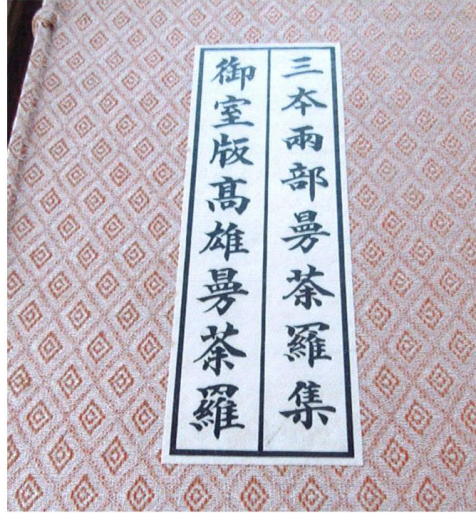 三本兩部曼荼羅集
御室版髙雄曼荼羅